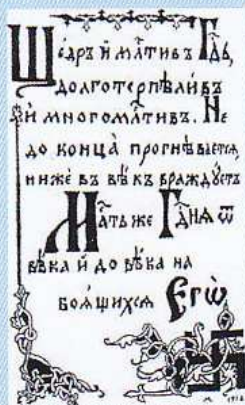 Щедръ и мл҃тивъ Гдⷭ҇ь,
долготерпѣливъ
и многомл҃тивъ. Не
до конца̀ прогнѣвается,
ниже въ вѣкъ враждуетъ
Млⷭ҇ть же Гдⷭ҇ня ѿ
вѣка и до вѣка на
боящихся Егѡ̀